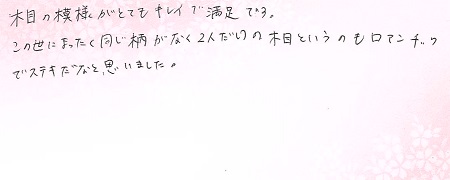 木目の模様がとてもキレイで満足です。
この世にまったく同じ柄がなく2人だけの木目というのもロマンチック
でステキだなと思いました。